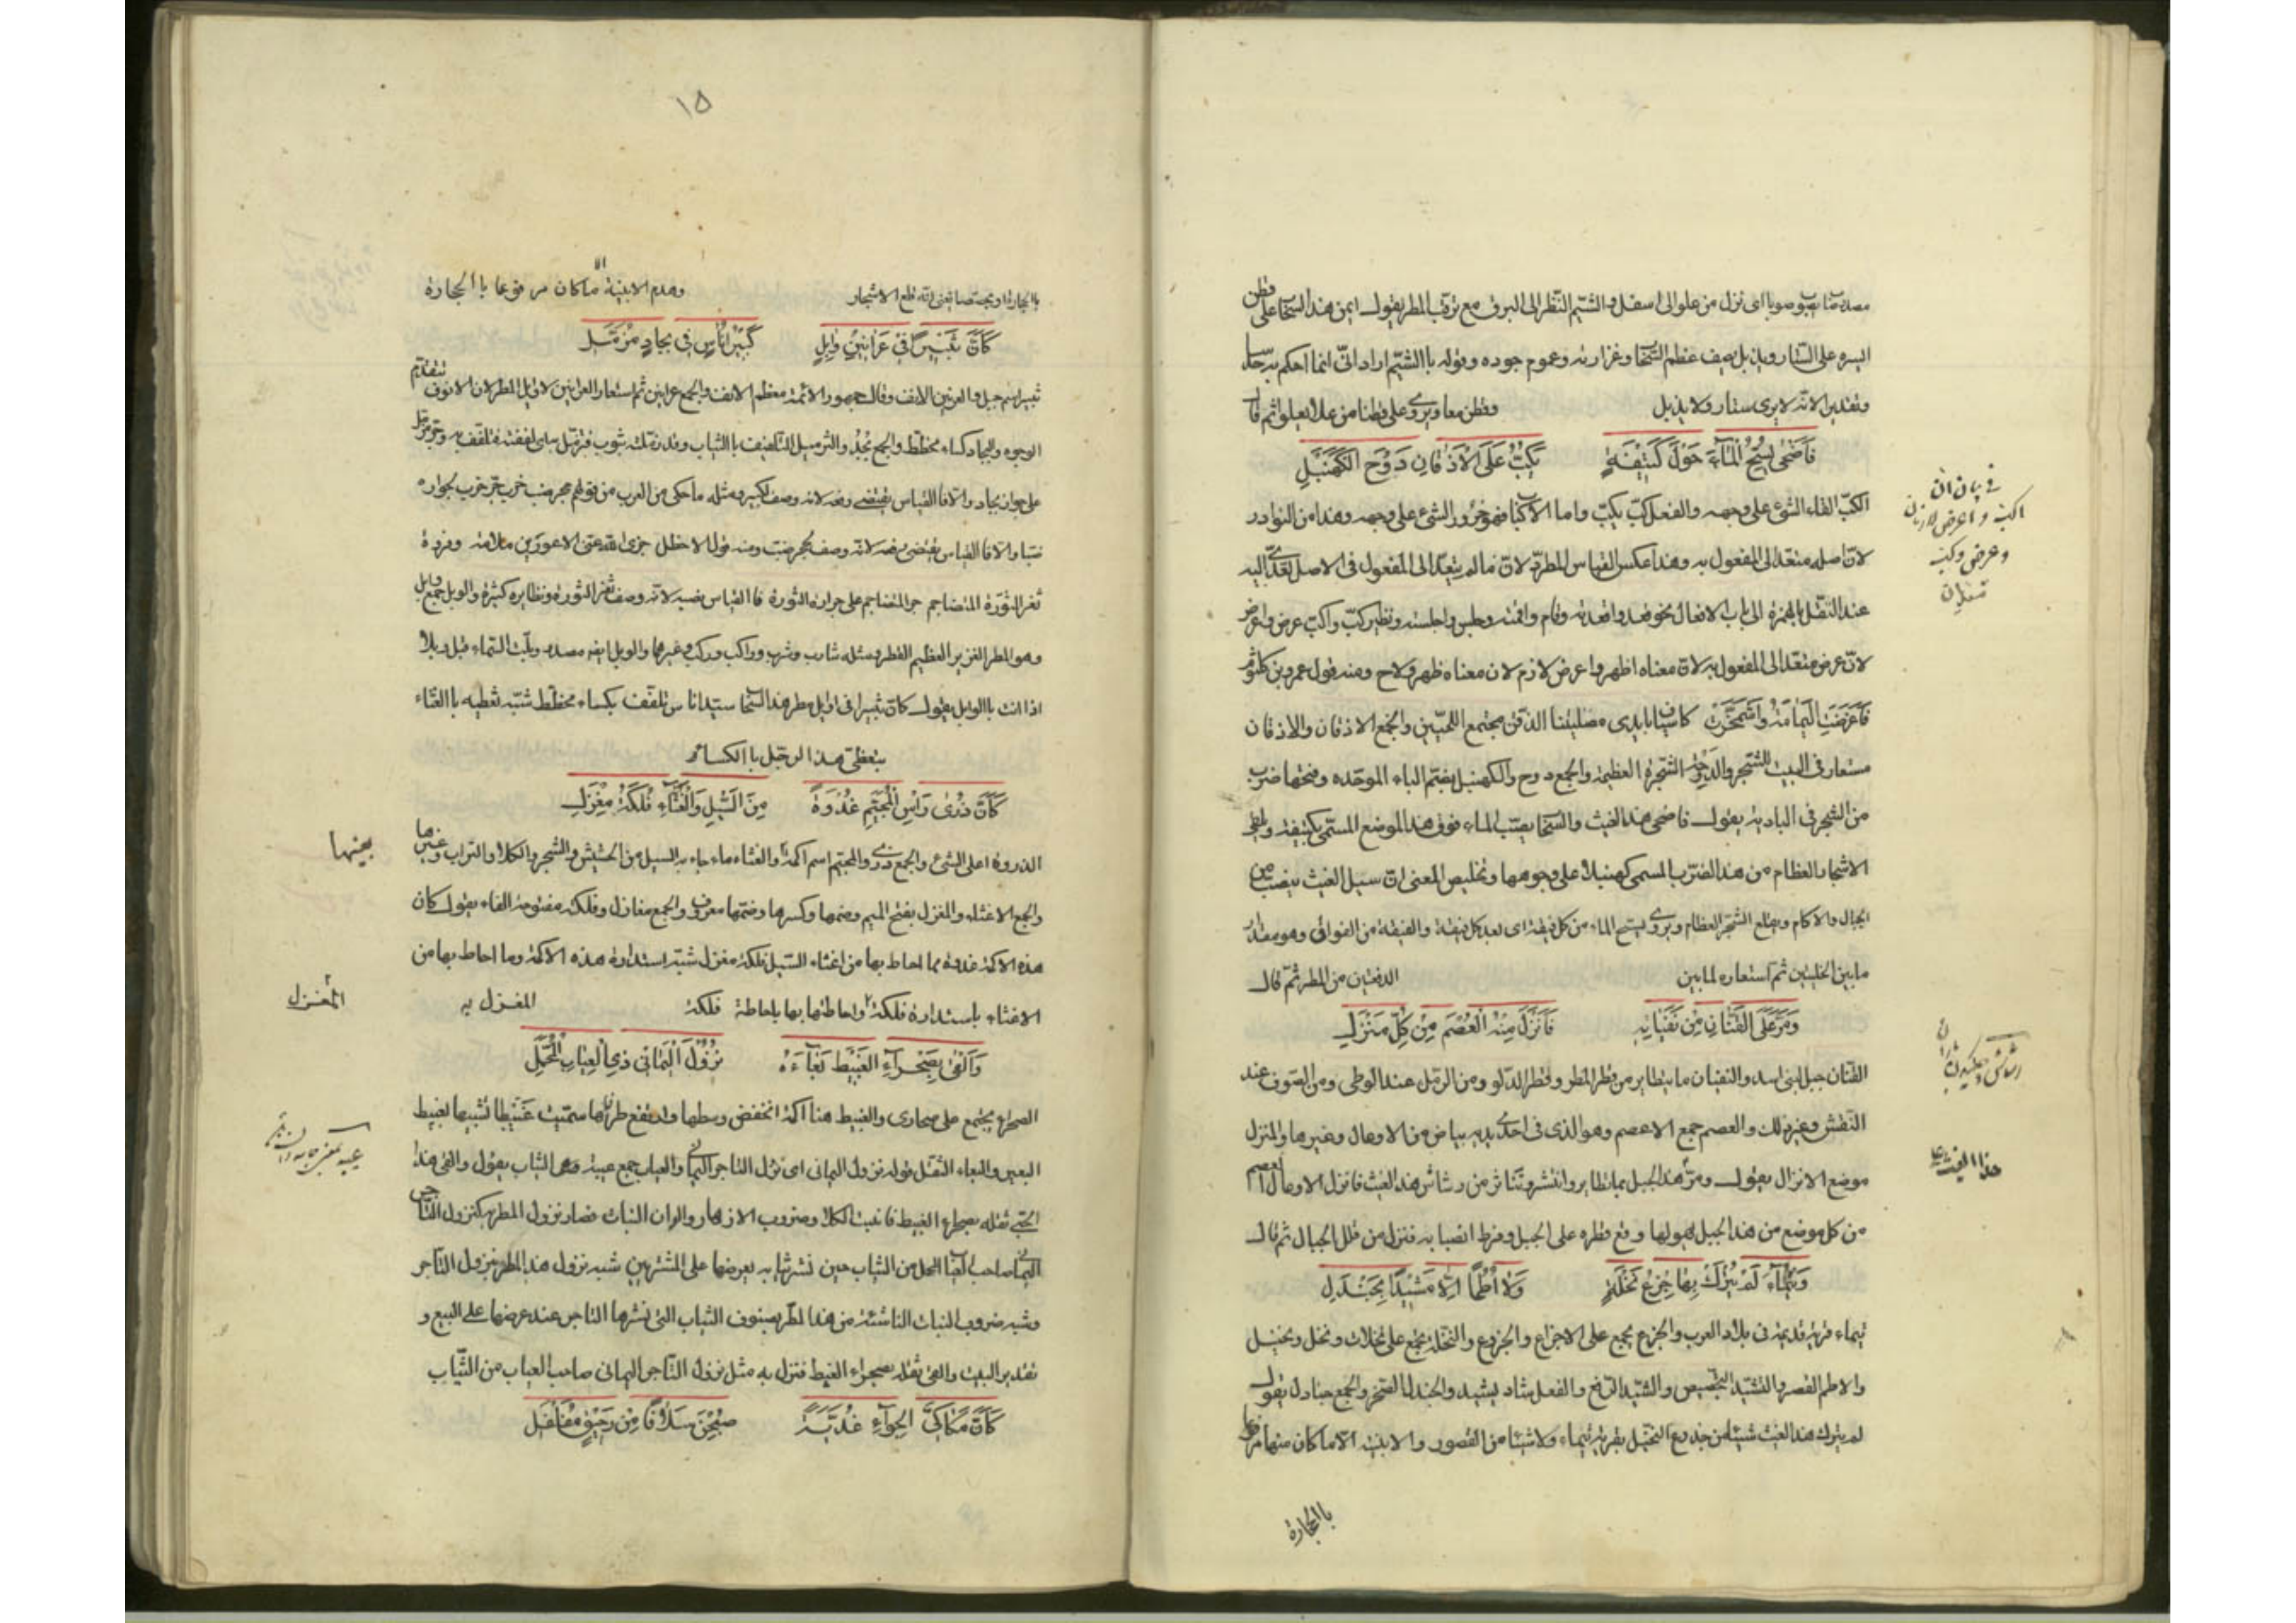 مصدر صاب يصوب صوبا اى نزل من علو الى اسفل والشيم النظر الى البرق مع ترقب المطر يقول ايمن هذا السحاب على قطن
ايسره على الستار ويذبل يصف عظم السحاب وغزارته وعموم جوده وقوله بالشيم اراد انى انما احكم به حدسا
وتقديرا لانه لا يرى ستار ولا يذبل وقطن معا ويروى على قطنا من علا يعلو ثم قال
فَاَضْحٰى يَسُحُّ الْمَآءَ حَوْلَ كُتَيْفَةٍ يَكُبُّ عَلَى الْاَذْقَانِ دَوْحَ الْكَنَهْبَلِ
الكب القاء الشئ على وجهه والفعل كب يكب واما الاكباب فهو خرور الشئ على وجهه وهذا من النوادر
لان اصله متعد الى المفعول به وهذا عكس القياس المطرد لان ما لم يتعد الى المفعول فى الاصل تعدى اليه
عند النقل بالهمزة الى باب الافعال نحو قعد واقعدته وقام واقمته وجلس واجلسته ونظير كب واكب عرض واعرض
لان عرض متعد الى المفعول به لان معناه اظهر واعرض لازم لان معناه ظهر ولاح ومنه قول عمرو بن كلثوم
فَاَعْرَضَتِ الْيَمَامَةُ وَاشْمَخَرَّتْ كاسياف بايدى مصلتينا الذقن مجتمع اللحيين والجمع الاذقان والاذقان
مستعار فى البيت للشجر والدوحة الشجرة العظيمة والجمع دوح والكنهبل بضم الباء الموحده وفتحها ضرب
من الشجر فى البادية يقول فاضحى هذا الغيث والسحاب يصب الماء فوق هذا الموضع المسمى بكتيفة ويلقى
الاشجار العظام من هذا الضرب المسمى كهنبلا على وجوهها وتلخيص المعنى ان سيل الغيث ينصب من
الجبال والاكام ويقلع الشجر العظام ويروى يسح الماء من كل فيقة اى بعد كل فيقة والفيقة من الفواق وهو مقدار
ما بين الحلبتين ثم استعاره لما بين الدفعتين من المطر ثم قال
وَمَرَّ عَلَى الْقَنَانِ مِنْ نَفَيَانِهِ فَاَنْزَلَ مِنْهُ الْعُصْمَ مِنْ كُلِّ مَنْزِلِ
القنان جبل لبنى اسد والنفيان ما يتطاير من قطر المطر وقطر الدلو ومن الرمل عند الوطى ومن الصوف عند
النفش وغير ذلك والعصم جمع الاعصم وهو الذى فى احدى يديه بياض من الاوعال وغيرها والمنزل
موضع الانزال يقول ومر هذا الجبل مما تطاير وانتشر وتناثر من رشاش هذا الغيث فانزل الاوعال العصم
من كل موضع من هذا الجبل لهولها وقع قطره على الجبل وفرط انصبابه فتنزل من قلل الجبال ثم قال
وَتَيْمَآءَ لَمْ يَتْرُكْ بِهَا جِذْعَ نَخْلَةٍ وَلَا اُطُمًا اِلَّا مَشِيْدًا بِجَنْدَلِ
تيماء قرية قديمة فى بلاد العرب والجذع يجمع على الاجذاع والجزوع والنخلة يجمع على نخلات ونخل ونخيل
والاطم القصر والشيد التجصيص والشيد الرفع والفعل شاد يشيد والجندل الصخر والجمع جنادل يقول
لم يترك هذا الغيث شيئا من جذوع النخيل بقرية تيماء ولا شيئا من القصور والابنية الا ما كان منها مرفوعا
بالحجارة
فى بيان ان
اكب و اعرض لازمان
و عرض وكب
متعديان
هذا الغيث على
١٥
بالحجارة او مجصصا يعنى انه قلع الاشجار وهدم الابنية الا ما كان مرفوعا باالحجارة
كَاَنَّ ثَبِيْرًا فِى عَرَانِيْنِ وَابِلٍ كَبِيْرُ اُنَاسٍ فِى بِجَادٍ مُزَمَّلِ
ثبير اسم جبل والعرنين الانف وقال جمهور الائمة معظم الانف والجمع عرانين ثم استعار العرانين لاوايل المطر لان الانوف تتقدم
الوجوه والبجاد كساء مخطط والجمع بُجُد والتزميل التلفيف باالثياب وقد زملته بثوب فتزمل به اى لففته فتلفف به وجر مزمل
على جوار بجاد والا فالقياس يقتضى رفعه لانه وصف كبير ومثله ما حكى من العرب من قولهم جحر ضب خرب جر خرب لجواره
ضبا والا فا القياس يقتضى رفعه لانه وصف جحر ضب ومنه قول الاخطل جزى الله عنى الاعورين ملامة وفروة
ثغر الثورة المتضاجم جر المتضاجم على جواره الثورة فا القياس نصبه لانه وصف ثغر الثورة ونظايره كثيرة والوبل جمع وابل
وهو المطر الغزير العظيم القطر ومثله شارب وشرب وراكب وركب وغيرها والوبل ايضه مصدر وبلت السماء تبل وبلا
اذا اتت باالوابل يقول كان ثبيرا فى اوايل مطر هذا السحاب سيد اناس تلفف بكساء مخطط شبه تغطيه باالغثاء
بتغطى هذا الرجل باالكساء ثم
كَاَنَّ ذُرٰى رَأْسِ الْمُجَيْمِرِ غُدْوَةً مِنَ السَّيْلِ وَالْغُثَّآءِ فَلْكَةُ مِغْزَلِ
الذروة اعلى الشئ والجمع ذرى والمجيمر اسم اكمة والغثاء ما جاء به السيل من الحشيش والشجر والكلا والتراب وغيرها
والجمع الاغثاء والمغزل بفتح الميم وضمها وكسرها وضمها معروف والجمع مغازل وفلكة مفتوحة الفاء يقول كان
هذه الاكمة غدوة مما احاط بها من اغثاء السيل فلكة مغزل شبه استدارة هذه الاكمة وما احاط بها من
الاغثاء باستدارة فلكة واحاطتها بها باحاطة فلكة المغزل به
وَاَلْقٰى بِصَحْرَآءِ الْغَبِيْطِ بَعَاعَهُ نُزُوْلَ الْيَمَانِى ذِى الْعِيَابِ الْمُحَمَّلِ
الصحراء يجمع على صحارى والغبيط هنا اكمة انخفض وسطها وارتفع طرفاها سميت غَبِيْطا تشبيها بغبيط
البعير والبعاء الثقل قوله نزول اليمانى اى نزول التاجر اليمانى والعياب جمع عيبة وهى الثياب يقول والقى هذا
الحيى ثقله بصحراء الغبيط فانبت الكلا وضروب الازهار والوان النبات فصار نزول المطر به كنزول التاجر
اليمانى صاحب العياب المحل من الثياب حين نشر ثيابه يعرضها على المشترين شبه نزول هذا المطر بنزول التاجر
وشبه ضروب النبات الناشئة من هذا المطر بصنوف الثياب التى نشرها التاجر عند عرضها على البيع و
تقدير البيت والقى ثقله بصحراء الغبيط فنزل به مثل نزول التاجر اليمانى صاحب العياب من الثياب
كَاَنَّ مَكَاكِىَّ الْجِوَآءِ غُدَيَّةً صُبِحْنَ سُلَافًا مِنْ رَحِيْقٍ مُفَلْفَلِ
المغزل